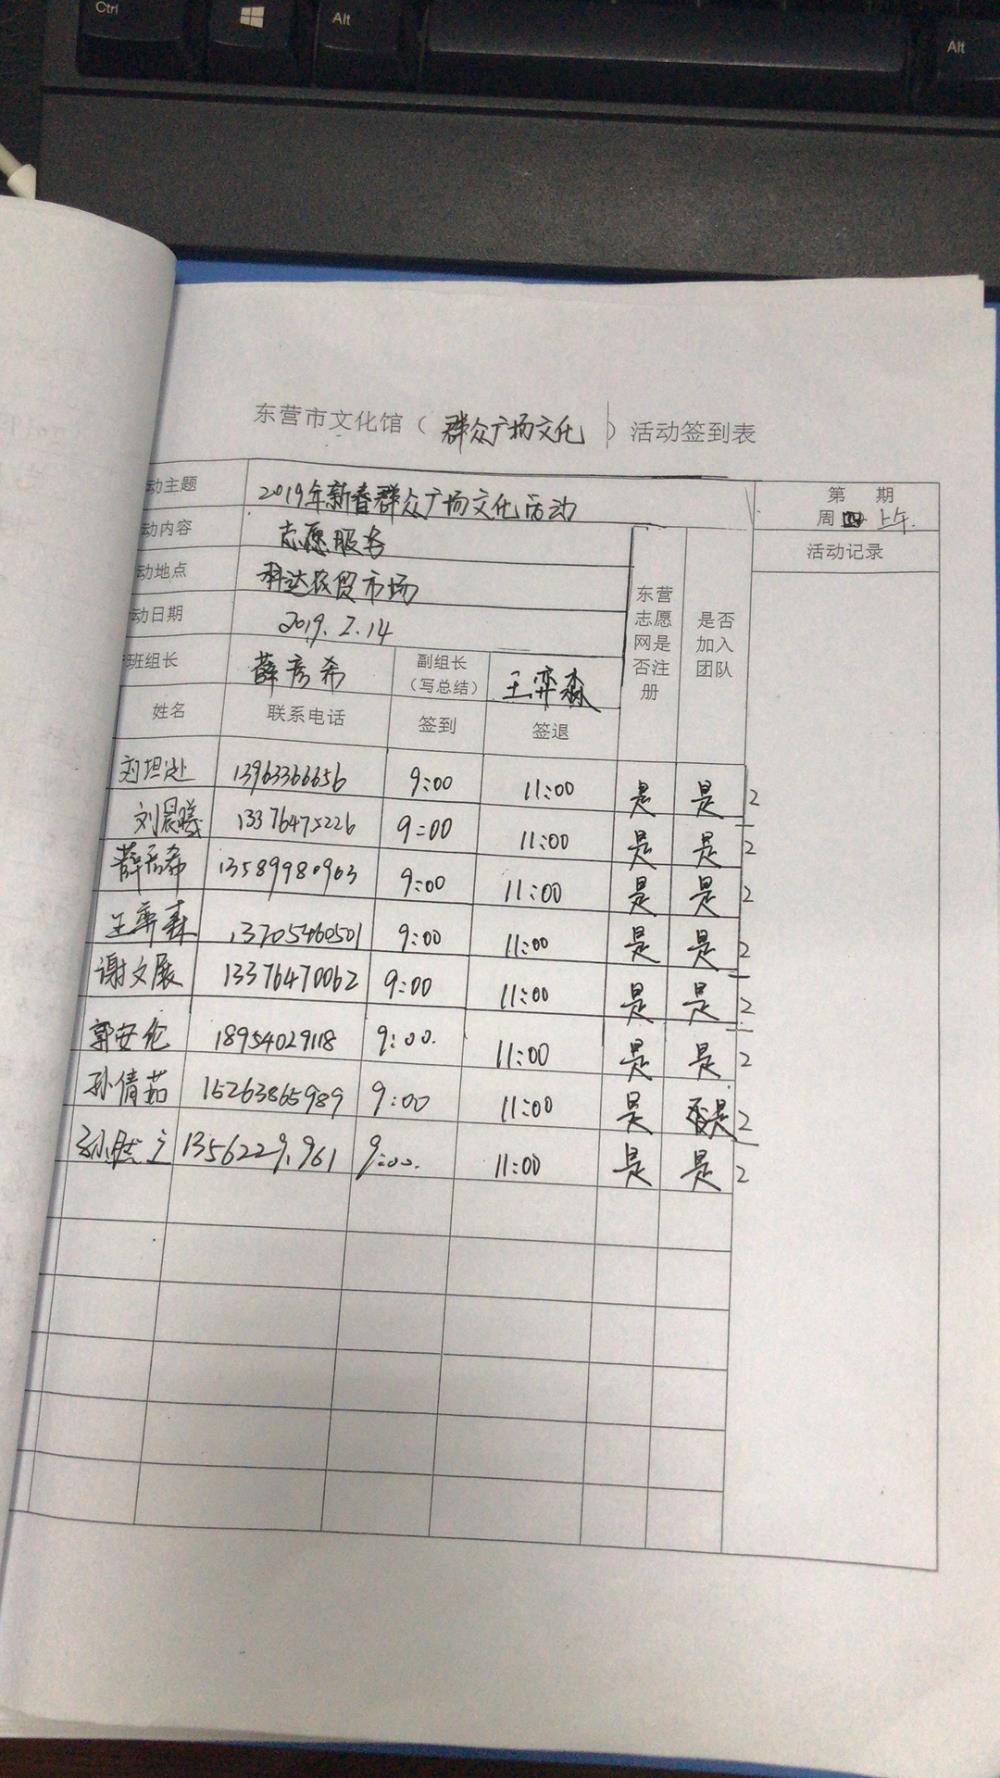 Ctrl
Alt
Alt
东营市文化馆（群众广场文化）活动签到表
动主题 2019年新春群众广场文化活动 第 期
周四上午.
动内容 志愿服务 活动记录
动地点 科达农贸市场
动日期 2019.2.14
东营志愿网是否注册 是否加入团队
班组长 薛彦希 副组长（写总结） 王弈森
姓名 联系电话 签到 签退
13963366656 9:00 11:00 是 是 2
刘晨曦 13376475226 9:00 11:00 是 是 2
薛彦希 13589980963 9:00 11:00 是 是 2
王弈森 13705460501 9:00 11:00 是 是 2
谢文展 13376470062 9:00 11:00 是 是 2
郭安伦 18954029118 9:00. 11:00 是 是 2
孙倩茹 15263865989 9:00 11:00 是 是 2
9:00. 11:00 是 是 2